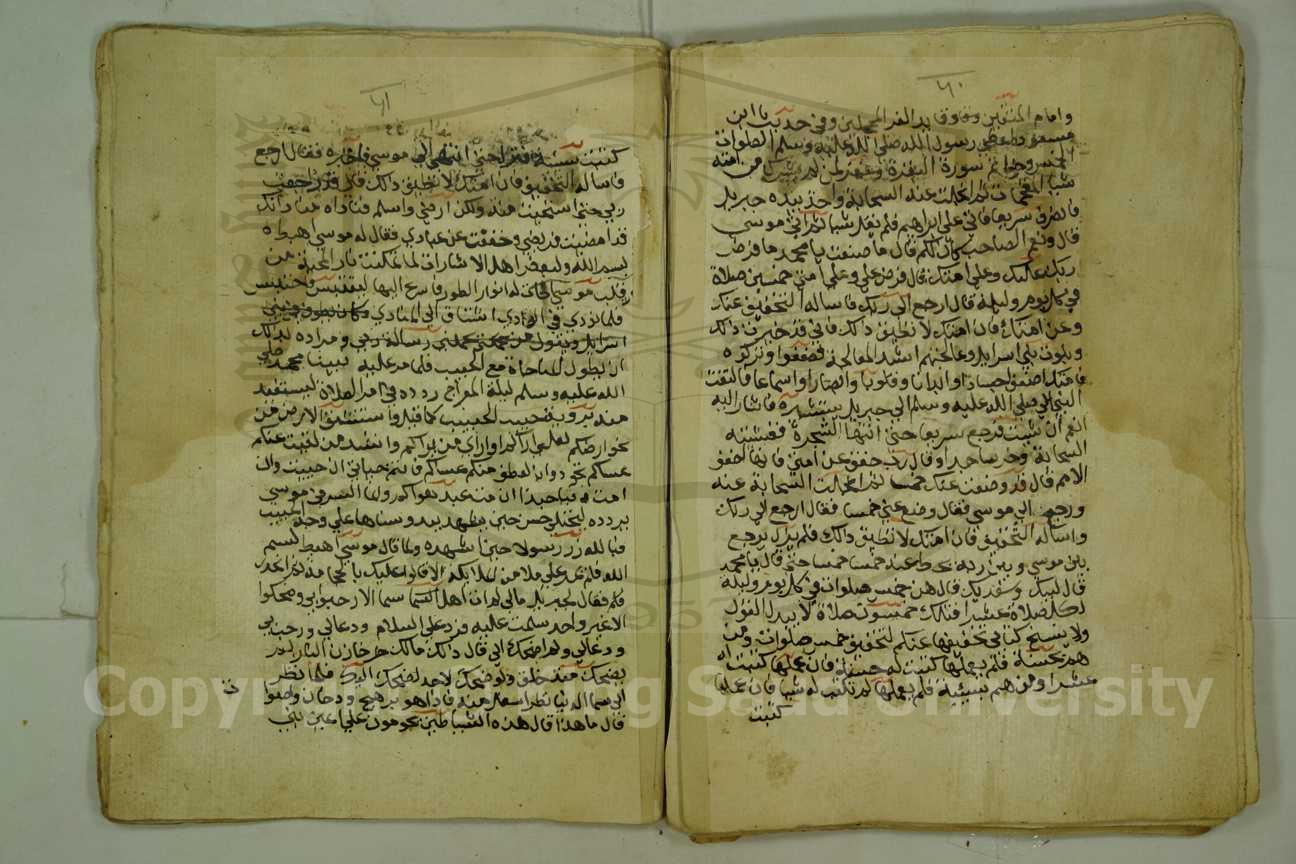 ٦٠
وامام المتقين وقايد الغر المحجلين وفي حديث بن
مسعود واعطي رسول الله صلى الله عليه وسلم الصلوات
الخمس وخواتم سورة البقرة وغفر لمن لم يشرك من امته
شيا المقحمات ثم انجلت عنه السحابة واخذ بيده جبريل
فانصرف سريعا فاتى على ابراهيم فلم يقل شيا ثم اتى موسى
قال ونعم الصاحب كان لكم قال ما صنعت يا محمد ما فرض
ربك عليك وعلى امتك قال فرض علي وعلى امتي خمسين صلاة
في كل يوم وليلة قال ارجع الى ربك فاساله التخفيف عنك
وعن امتك فان امتك لا تطيق ذلك فاني قد خبرت
وبلوت بني اسرايل وعالجتهم اشد المعالجة فضعفوا وتركوه
فامتك اضعف اجسادا وابدانا وقلوبا وابصارا واسماعا فالتفت
النبي صلى الله عليه وسلم الى جبريل يستشيره فاشار اليه
ان شيت فرجع سريعا حتى انتهى الشجرة فغشيته
السحابة وخر ساجدا وقال رب خفف عن امتي فانها اضعف
الامم قال قد وضعت عنك خمسا ثم انجلت السحابة عنه
ورجع الى موسى فقال وضع عني خمسا فقال ارجع الى ربك
واساله التخفيف فان امتك لا تطيق ذلك فلم يزل يرجع
بين موسى وبين ربه يحط عنه خمسا خمسا حتى قال يا محمد
قال لبيك وسعديك قال هن خمس صلوات في كل يوم وليلة
لكل صلاة عشرا فتلك خمسون صلاة لا يبدل القول
ولا ينسخ كتابي تخفيفها عنكم لتخفيف خمس صلوات ومن
هم بحسنة فلم يعملها كتبت له حسنة فان عملها كتبت له
عشرا ومن هم بسيئة فلم يعملها لم تكتب له شيا فان عملها
كتبت
٦١
كتبت سيئة فنزل حتى انتهى الى موسى فاخبره فقال ارجع
فاساله التخفيف فان امتك لا تطيق ذلك قال قد راجعت
ربي حتى استحيت منه ولكن ارضى واسلم فناداه مناد ان
قد امضيت فريضتي وخففت عن عبادي فقال له موسى اهبط
بسم الله ولبعض اهل الاشارات لما تمكنت نار المحبة من
قلب موسى انوار الطور فاسرع اليها ليقتبس فاحتبس
فلما نودي في النادي اشتاق الى المنادي فكان يطوف في بني
اسرايل ويقول من يحملني رسالة ربي ومراده بذلك
ان يطول المناجاة مع الحبيب فلما مر عليه نبينا محمد صلى
الله عليه وسلم ليلة المعراج ردده في امر الصلاة ليستفيد
منه رؤية حبيب الحبيب كما قيل واستنشق الارض من
نحو ارضكم لعلي اراكم او ارى من يراكم وانشد من لقيت عنكم
عساكم فانتم حياتي ان حييت وان
امت فيا حبذا ان مت عبد هواكم وانما السر في موسى
يردده ليجتلي حسن حين يشهده يبدو سناها على وجه الحبيب
فيا لله در رسول حين اشهده ولما قال موسى اهبط بسم
الله فلم يمر على ملا من الملايكة الا قالوا عليك بالحجامة ثم انحدر
فلم فقال لجبريل مالي لم ات اهل سما الا رحبوا بي وضحكوا
الا غير واحد سلمت عليه فرد علي السلام ودعا لي ورحب بي
ودعا لي ولم يضحك الي قال ذلك مالك خازن النار لم
يضحك منذ خلق ولو ضحك لاحد لضحك اليك فلما نظر
الى سما الدنيا نظر اسفل منه فاذا هو برهج ودخان واصوات
قال ما هذا قال هذه الشياطين يحومون على اعين بني